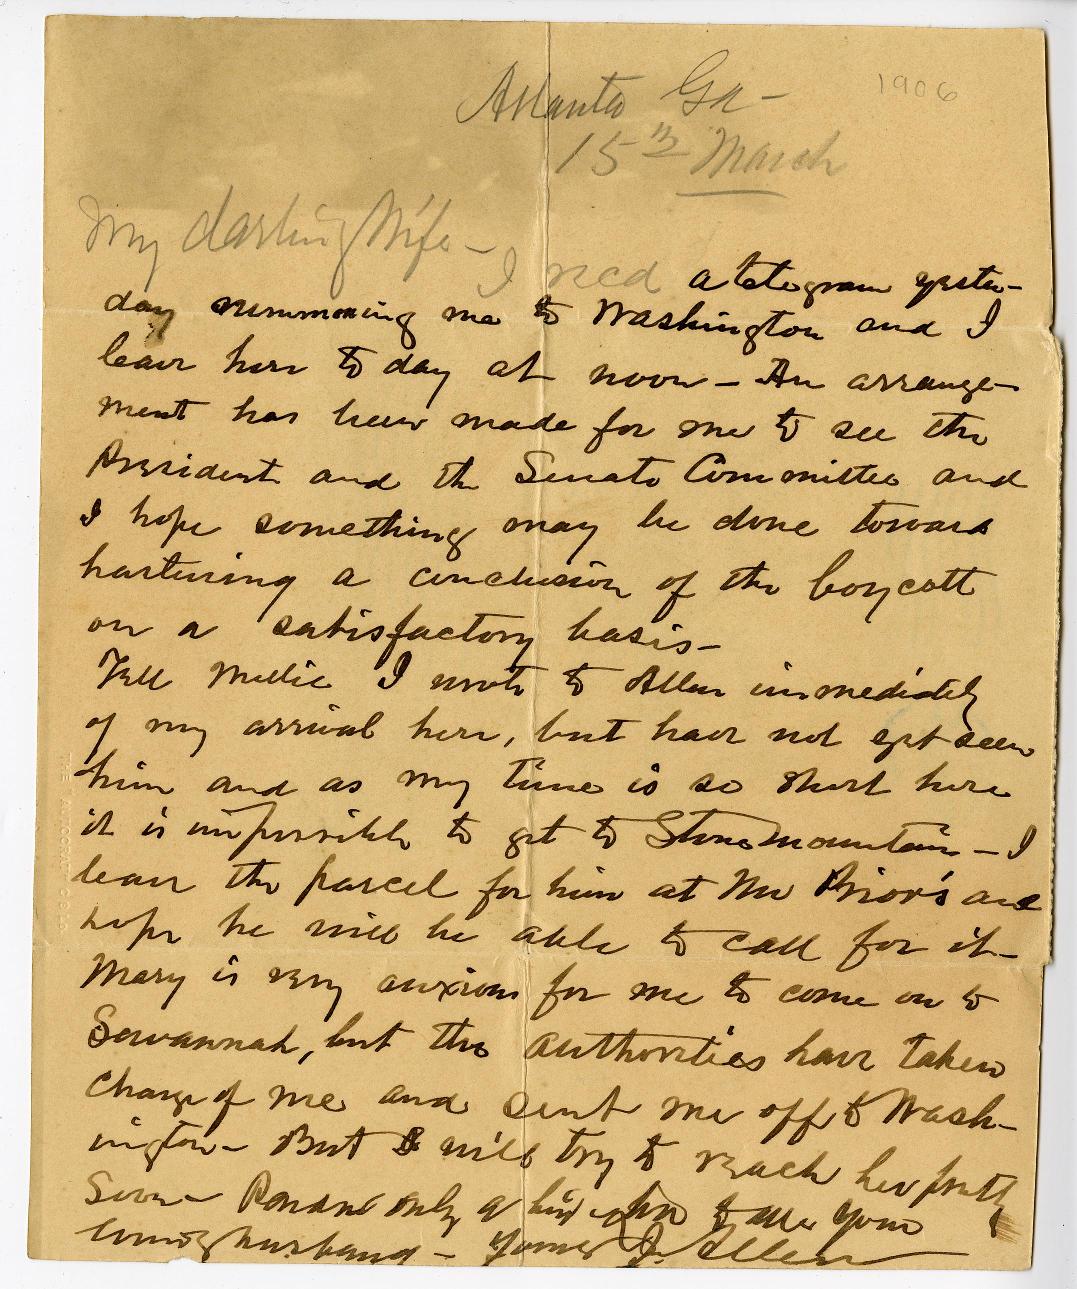 1906
Atlanta Ga -
15th March
My darling Wife -
I recd a telegram yester-
day summoning me to Washington and I
leave here to day at noon - An arrange-
ment has been made for me to see the
President and the Senate Committee and
I hope something may be done toward
hastening a conclusion of the boycott
on a satisfactory basis -
Tell Mellie I wrote to Allen immediately
of my arrival here, but have not yet seen
him and as my time is so short here
it is impossible to get to Stone mountain - I
leave the parcel for him at Mr Prior's and
hope he will be able to call for it -
Mary is very anxious for me to come on to
Savannah, but the authorities have taken
charge of me and sent me off to Wash-
ington - But I will try to reach her pretty
soon - only a to all your
loving husband - Young J. Allen